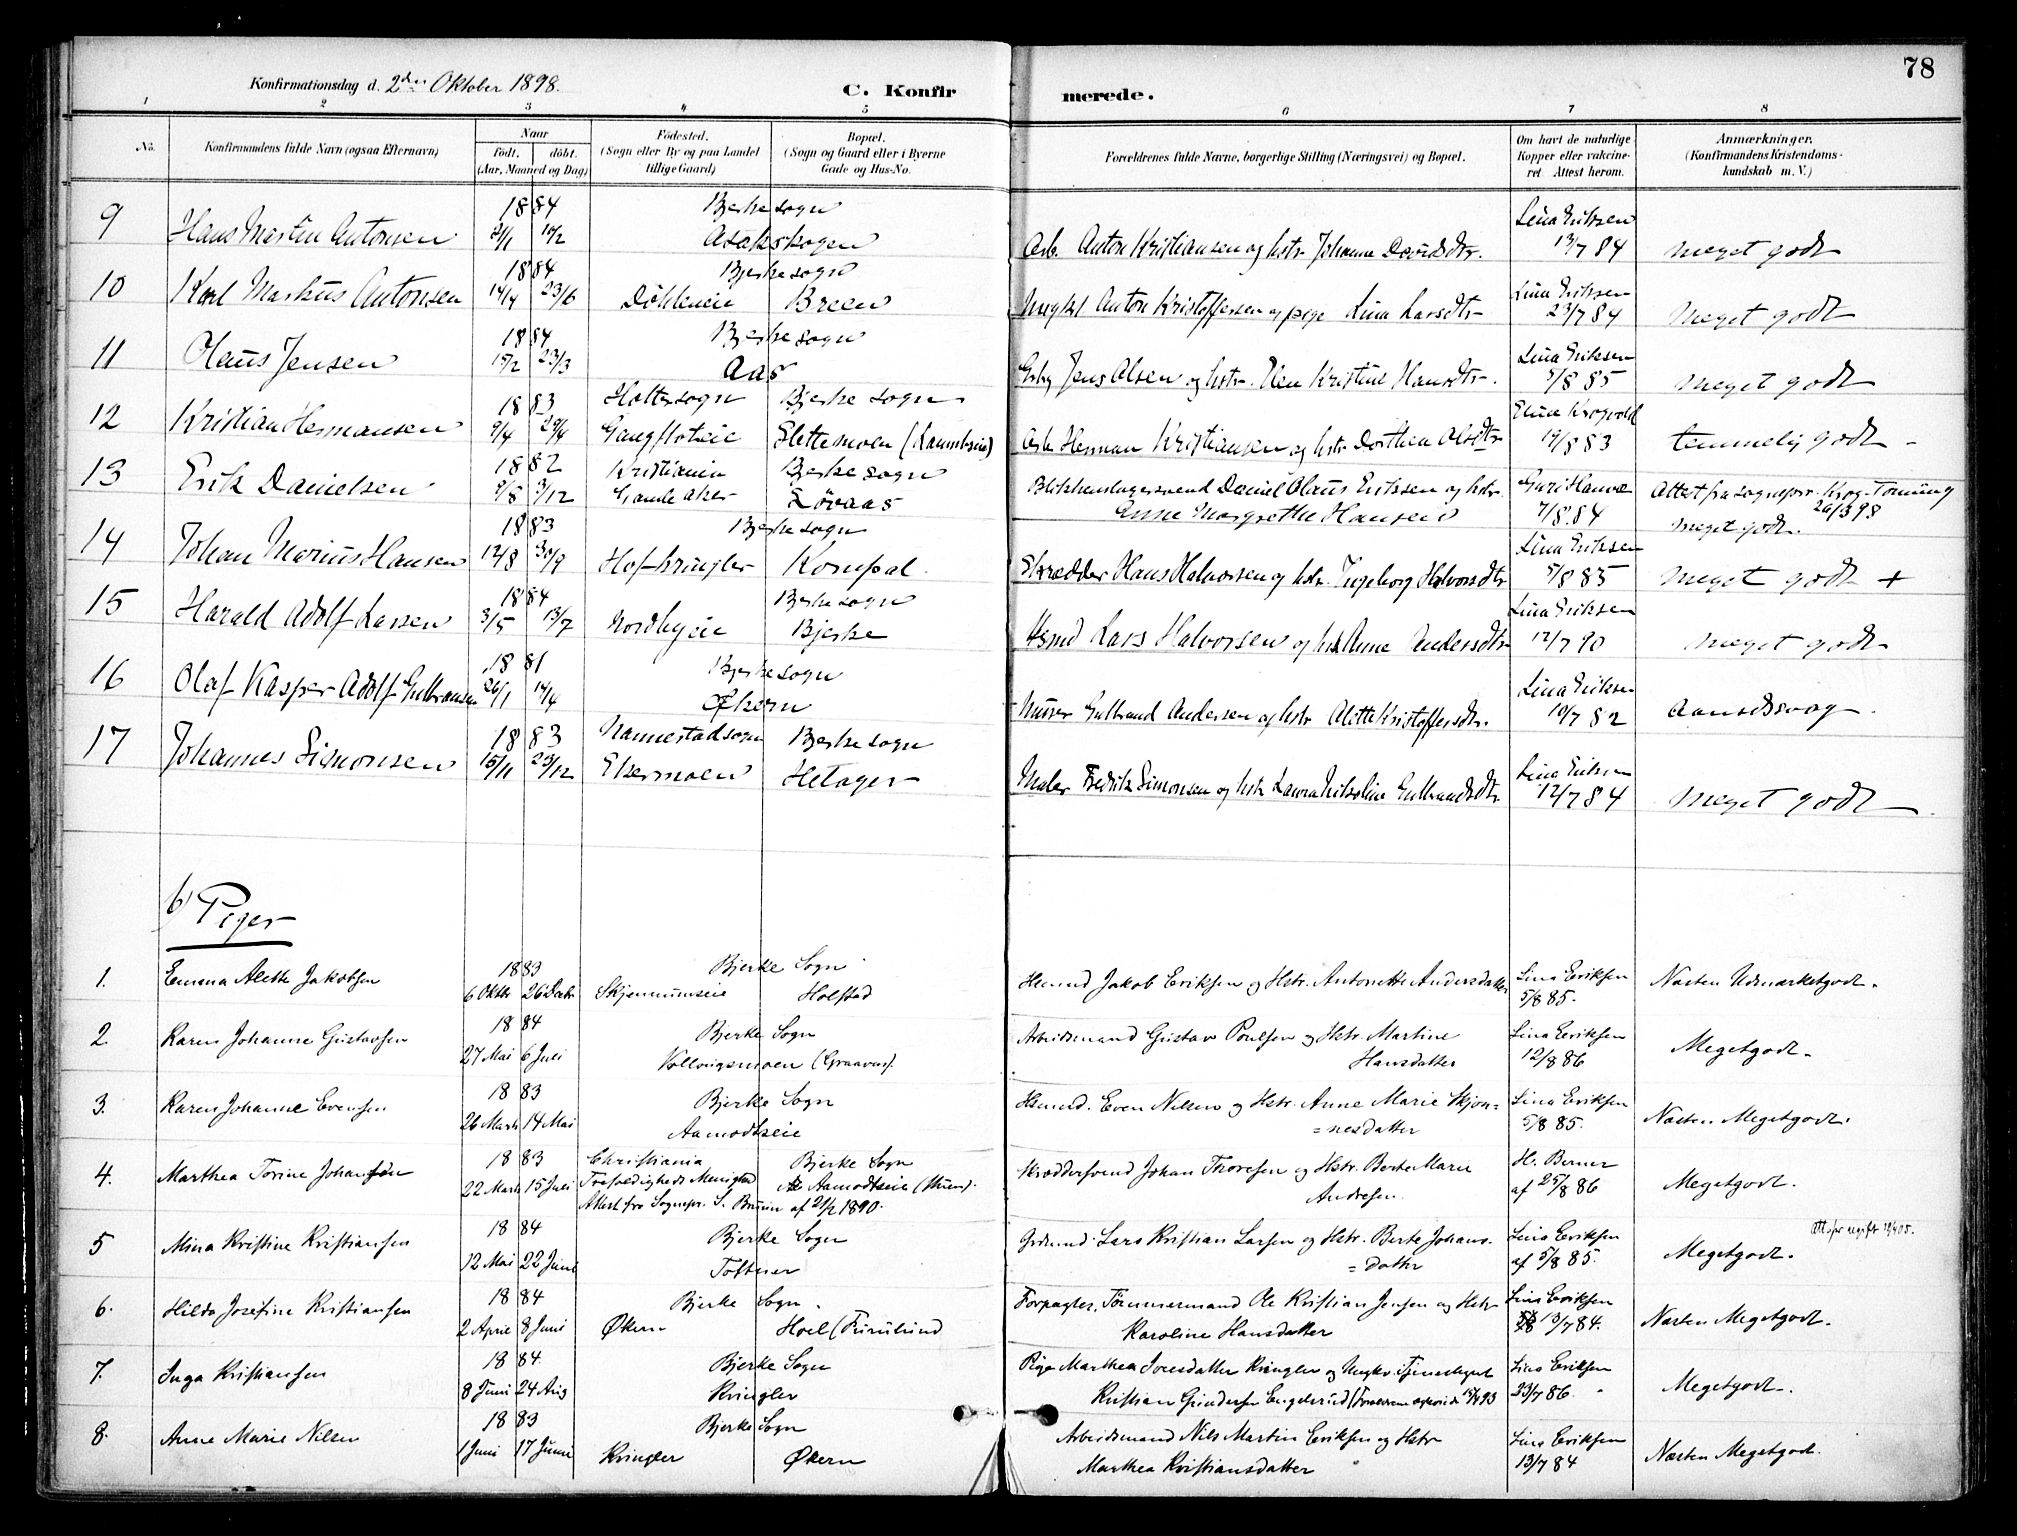 78
Konfirmationsdag d. 2den Oktober 1898.
C. Konfirmerede.
1 2 3 4 5 6 7 8
No. Konfirmandens fulde Navn (ogsaa Efternavn) Naar født. døbt. (Aar, Maaned og Dag) Fødested. (Sogn eller By og paa Landet tillige Gaard) Bopæl. (Sogn og Gaard eller i Byerne Gade og Hus-No. Forældrenes fulde Navne, borgerlige Stilling (Næringsvei) og Bopæl. Om havt de naturlige Kopper eller vakcineret. Attest herom. Anmærkninger. (Konfirmandens Kristendomskundskab m. V.)
9 Hans Martin Antonsen 1884 21/1 10/2 Bjerke sogn Asakskogen Arb. Anton Kristiansen og hstr. Johanne Davidsdtr. Lina Eriksen 13/7 84 meget godt
10 Karl Markus Antonsen 1884 14/4 23/6 Bjerke sogn Døhleneie Breen Ungkl Anton Kristoffersen og pige Lina Larsdtr Lina Eriksen 23/7 84 Meget godt
11 Olaus Jensen 1884 15/2 23/3 Bjerke sogn Aas Grbr. Jens Olsen og hstr. Elen Kristine Hansdtr. Lina Eriksen 5/8 85 meget godt
12 Kristian Hermansen 1883 9/4 29/4 Holter sogn Gangfloteie Bjerke sogn Slettemoen Arb Herman Kristiansen og hstr Dorthea Olsdtr Elina Krogvold 19/8 83 temmelig godt
13 Erik Danielsen 1882 9/8 3/12 Kristiania Gamle aker Bjerke sogn Løvaas Blikkenslagersvend Daniel Olaus Eriksen og hstr. Anne Margrethe Hansen Guri 7/8.84 Attest fra sognepr. Krog-Tonning 26/3 98 meget godt.
14 Johan Marius Hansen 1883 12/8 30/9 Bjerke sogn Hof-kringler Kompal Skrædder Hans Halvorsen og hstr. Ingeborg Halvorsdtr Lina Eriksen 5/8 85 Meget godt +
15 Harald Adolf Larsen 1884 3/5 13/7 Bjerke sogn Nordbyeie Bjerke Hsmd Lars Halvorsen og hstr Anne Andersdtr Lina Eriksen 12/7 90 Meget godt
16 Olaf Kasper Adolf Gulbransen 1881 26/1 14/4 Bjerke sogn Økern Murer Gulbrand Andersen og hstr Alette Kristoffersdtr. Lina Eriksen 10/7 82 Aandssvag.
17 Johannes Simonsen 1883 15/11 23/12 Nannestad sogn Ekermoen Bjerke sogn Hetager Maler Fredrik Simonsen og hstr Laura Nikoline Gulbrandsdtr Lina Eriksen 12/7 84 Meget godt
b) Piger
1. Emma Alette Jakobsen 1883 6 Oktbr 26 Decbr Bjerke Sogn Skjennumseie Holstad Hsmd Jakob Eriksen og Hstr. Antonette Andersdatter Lina Eriksen 5/8 85. Næsten Udmærketgodt.
2. Karen Johanne Gustavsen 1884 27 Mai 6 Juli Bjerke Sogn Vollaugsmoen (Graavas). Arbeidsmand Gustav Poulsen og Hstr. Martine Hansdatter Lina Eriksen 12/8 86 Megetgodt.
3. Karen Johanne Evensen 1883 26 Marts 14 Mai Bjerke Sogn Aamodtseie Hsmd. Even Nilsen og Hstr. Anne Marie Skjon=
=nesdatter Lina Eriksen 5/8 85. Næsten Megetgodt.
4. Marthea Torine Johansen 1883 22 Marts 15 Juli Christiania Trefoldigheds Menighed Attest fra Sognepr. S. Bruun af 21/2 1890. Bjerke Sogn Aamodtseie Skræddersvend Johan Thoresen og Hstr. Berte Marie Andresen. H. Berner af 25/8 86 Megetgodt.
5 Mina Kristine Kristiansen 1884 12 Mai 22 Juni Bjerke Sogn Toftner Grdmd. Lars Kristian Larsen og Hstr. Berte Johans=
=datter Lina Eriksen af 5/8 85. Megetgodt.
6. Hilda Josefine Kristiansen 1884 2 April 8 Juni Bjerke Sogn. Økern Hoel (Furulund Forpagter, Tømmermand Ole Kristian Jensen og Hstr Karoline Hansdatter Lina Eriksen 13/7 84. Næsten Megetgodt.
7. Inga Kristiansen 1884. 8 Juni 24 Aug Bjerke Sogn Kringler Pige Marthea Iversdatter Kringler og Ungkr. Tjenestegut Kristian Gundersen Engelsrud Lina Eriksen 23/7 86. Megetgodt.
8. Anne Marie Nilsen 1883 1 Juni 17 Juni Bjerke Sogn Kringler Økern Arbeidsmand Nils Martin Eriksen og Hstr Marthea Kristiansdatter Lina Eriksen 13/7 84 Næsten Megetgodt.